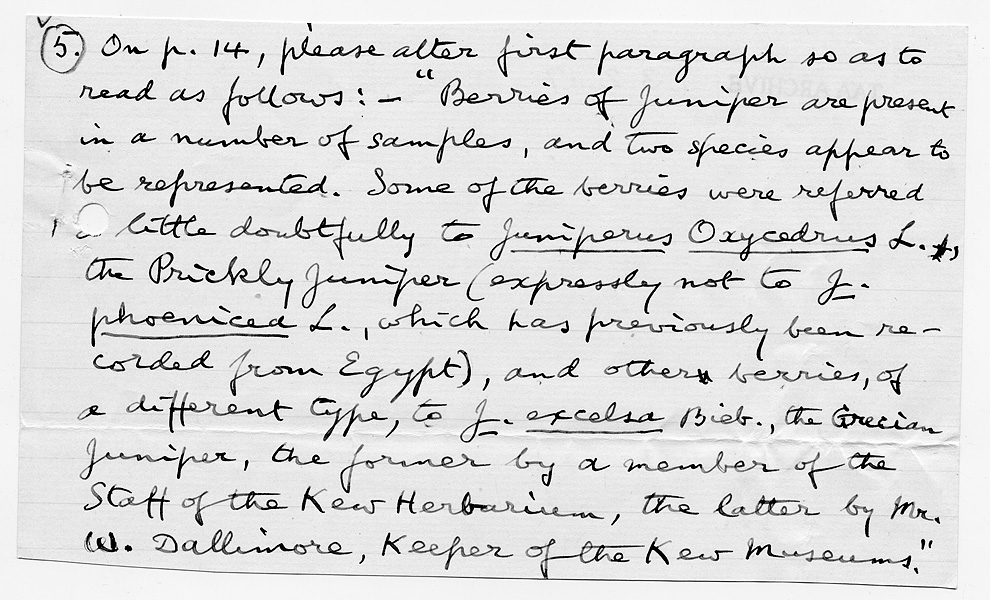 5. On p. 14, please alter first paragraph so as to
read as follows: – "Berries of Juniper are present
in a number of samples, and two species appear to
be represented. Some of the berries were referred
little doubtfully to Juniperus Oxycedrus L.,
the Prickly Juniper (expressly not to J.
phoenicea L., which has previously been re-
corded from Egypt), and other berries, of
a different type, to J. excelsa Bieb., the Grecian
Juniper, the former by a member of the
Staff of the Kew Herbarium, the latter by Mr.
W. Dallimore, Keeper of the Kew Museums."